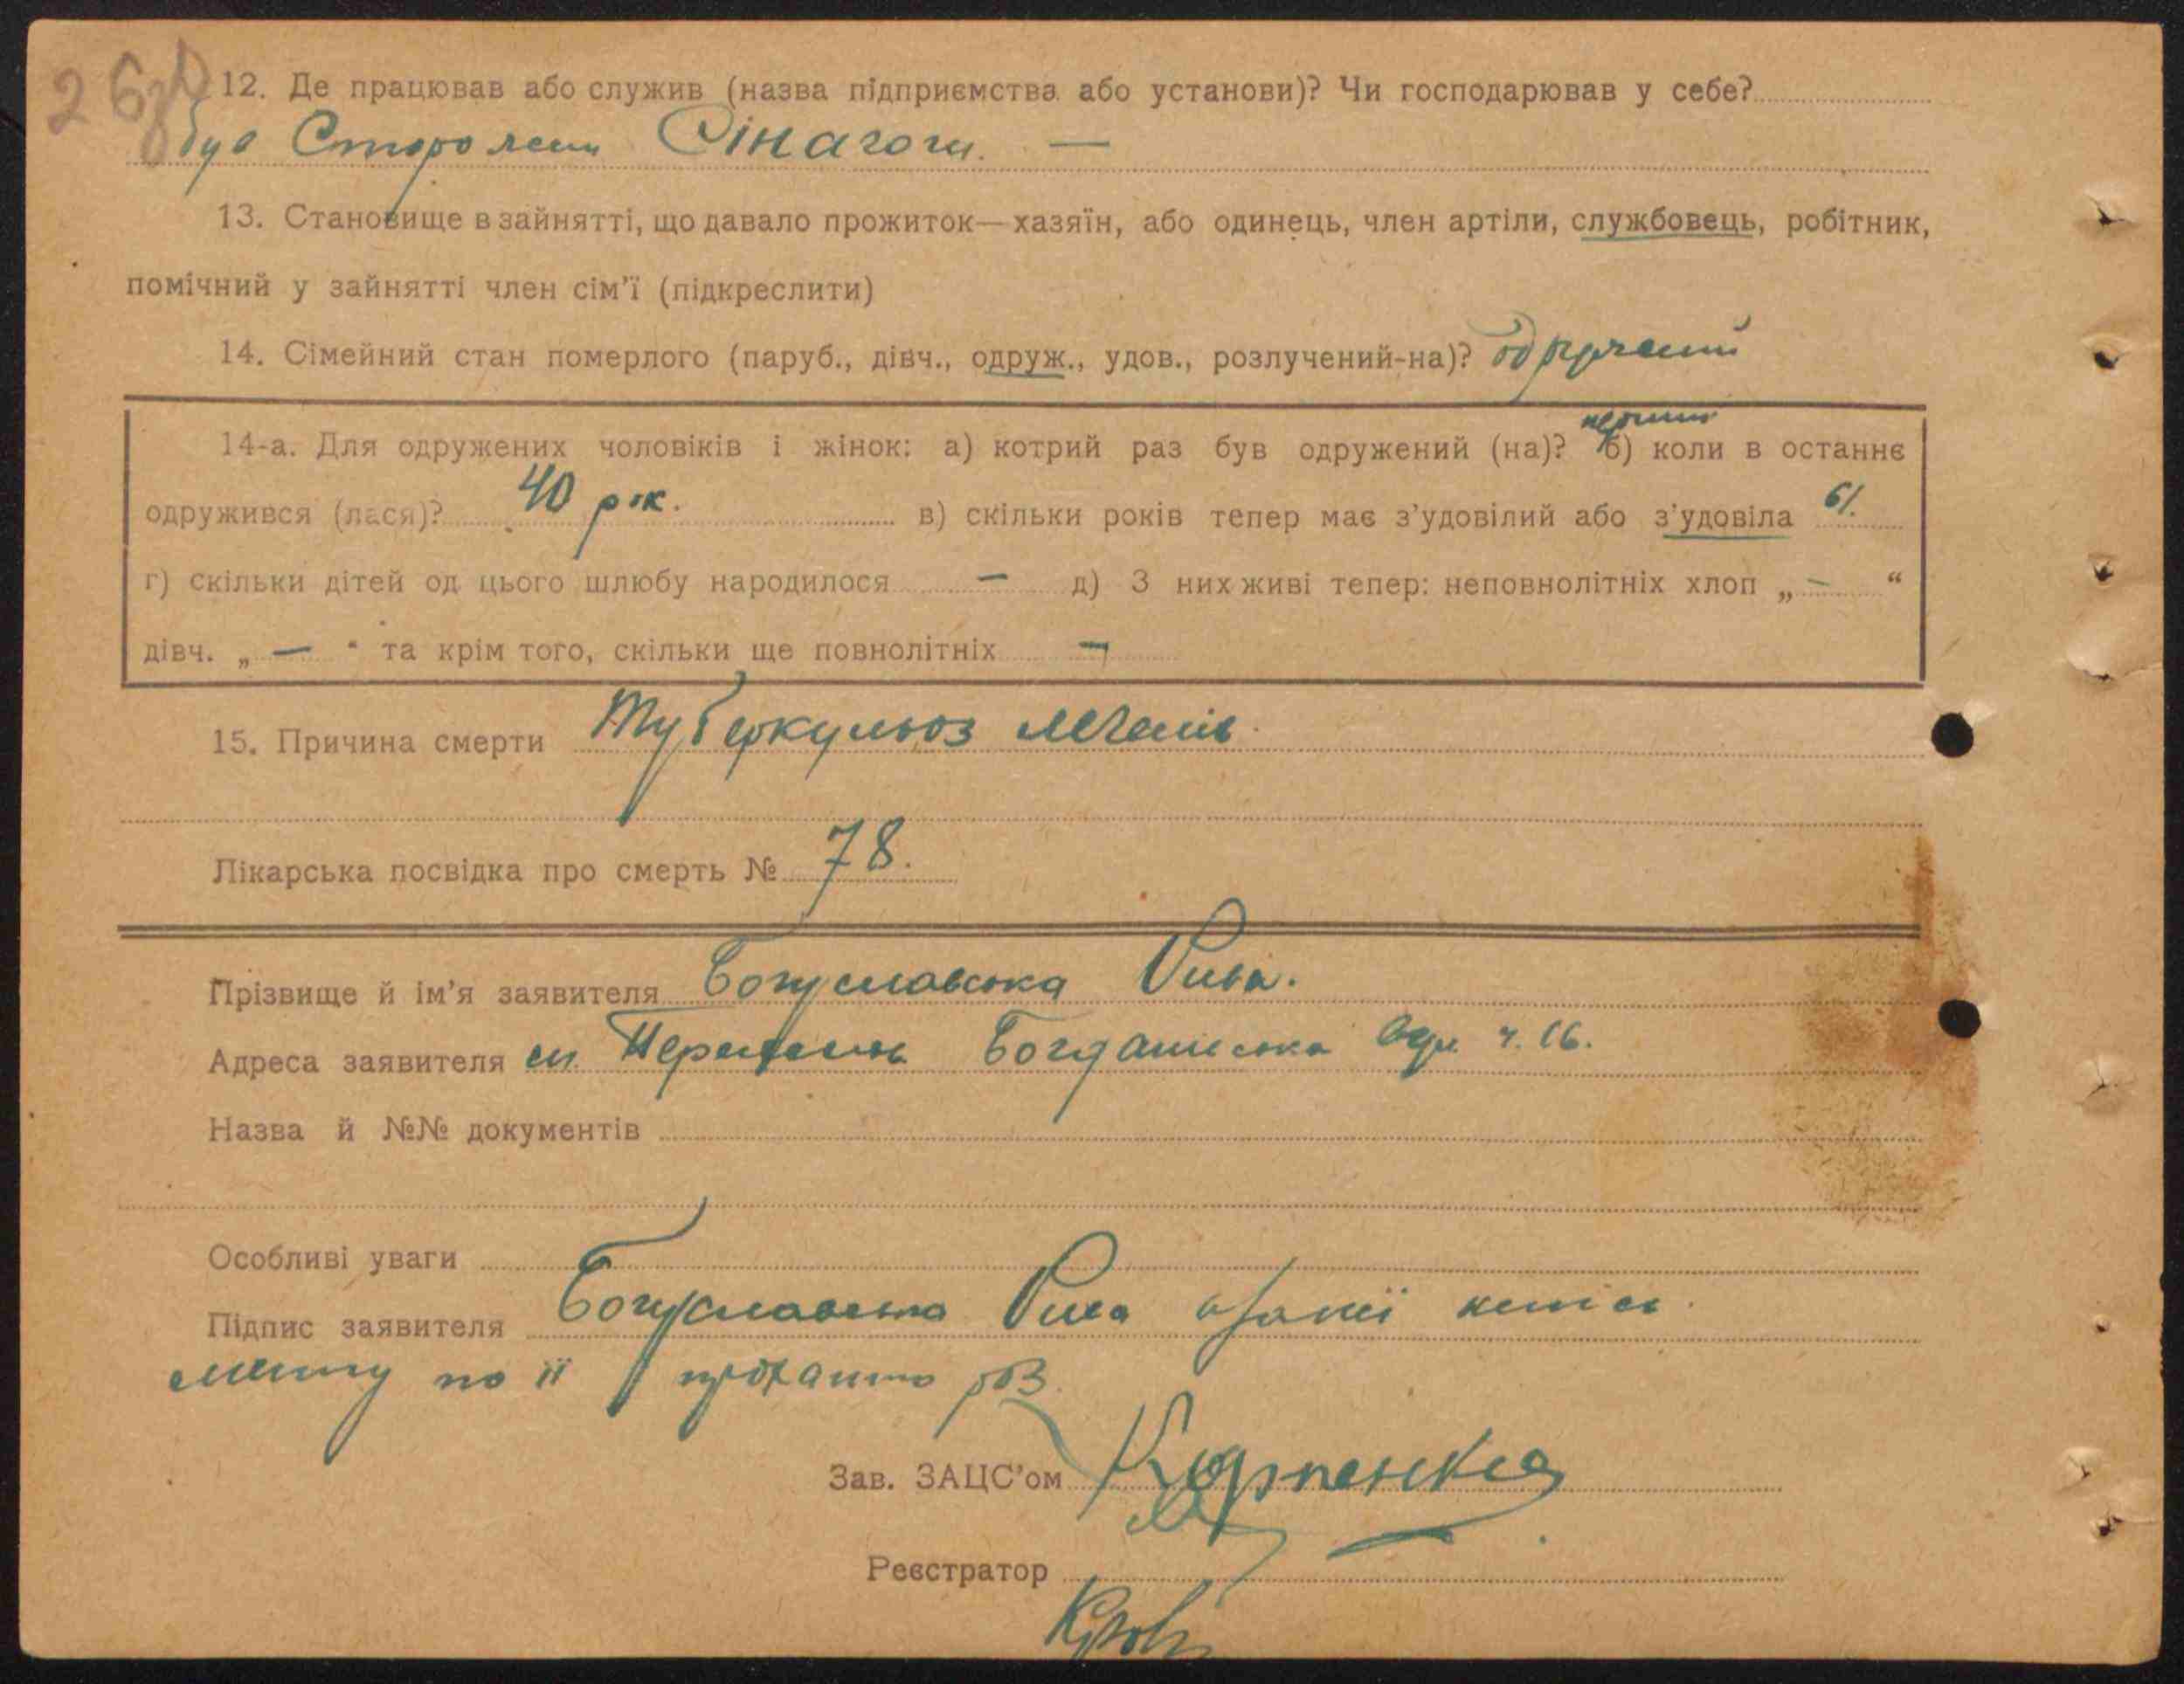 26
12. Де працював або служив (назва підприємства або установи)? Чи господарював у себе?
був Сторожем Сінагоги. —
13. Становище в зайнятті, що давало прожиток— хазяїн, або одинець, член артіли, службовець, робітник,
помічний у зайнятті член сім'ї (підкреслити)
14. Сімейний стан померлого (паруб., дівч., одруж., удов., розлучений-на)? одружений
14-а. Для одружених чоловіків і жінок: а) котрий раз був одружений (на)? перший б) коли в останнє
одружився (лася)? 40 рок. в) скільки років тепер має з'удовілий або з'удовіла 61.
г) скільки дітей од цього шлюбу народилося — д) З них живі тепер: неповнолітніх хлоп „ — “
дівч. „ — “ та крім того, скільки ще повнолітніх —
15. Причина смерти Туберкульоз легенів.
Лікарська посвідка про смерть № 78.
Прізвище й ім'я заявителя Богуславська Рива.
Адреса заявителя Богданівська вул. ч. 16.
Назва й №№ документів
Особливі уваги
Підпис заявителя Богуславська Рива
по її проханню
Зав. ЗАЦС'ом
Реєстратор